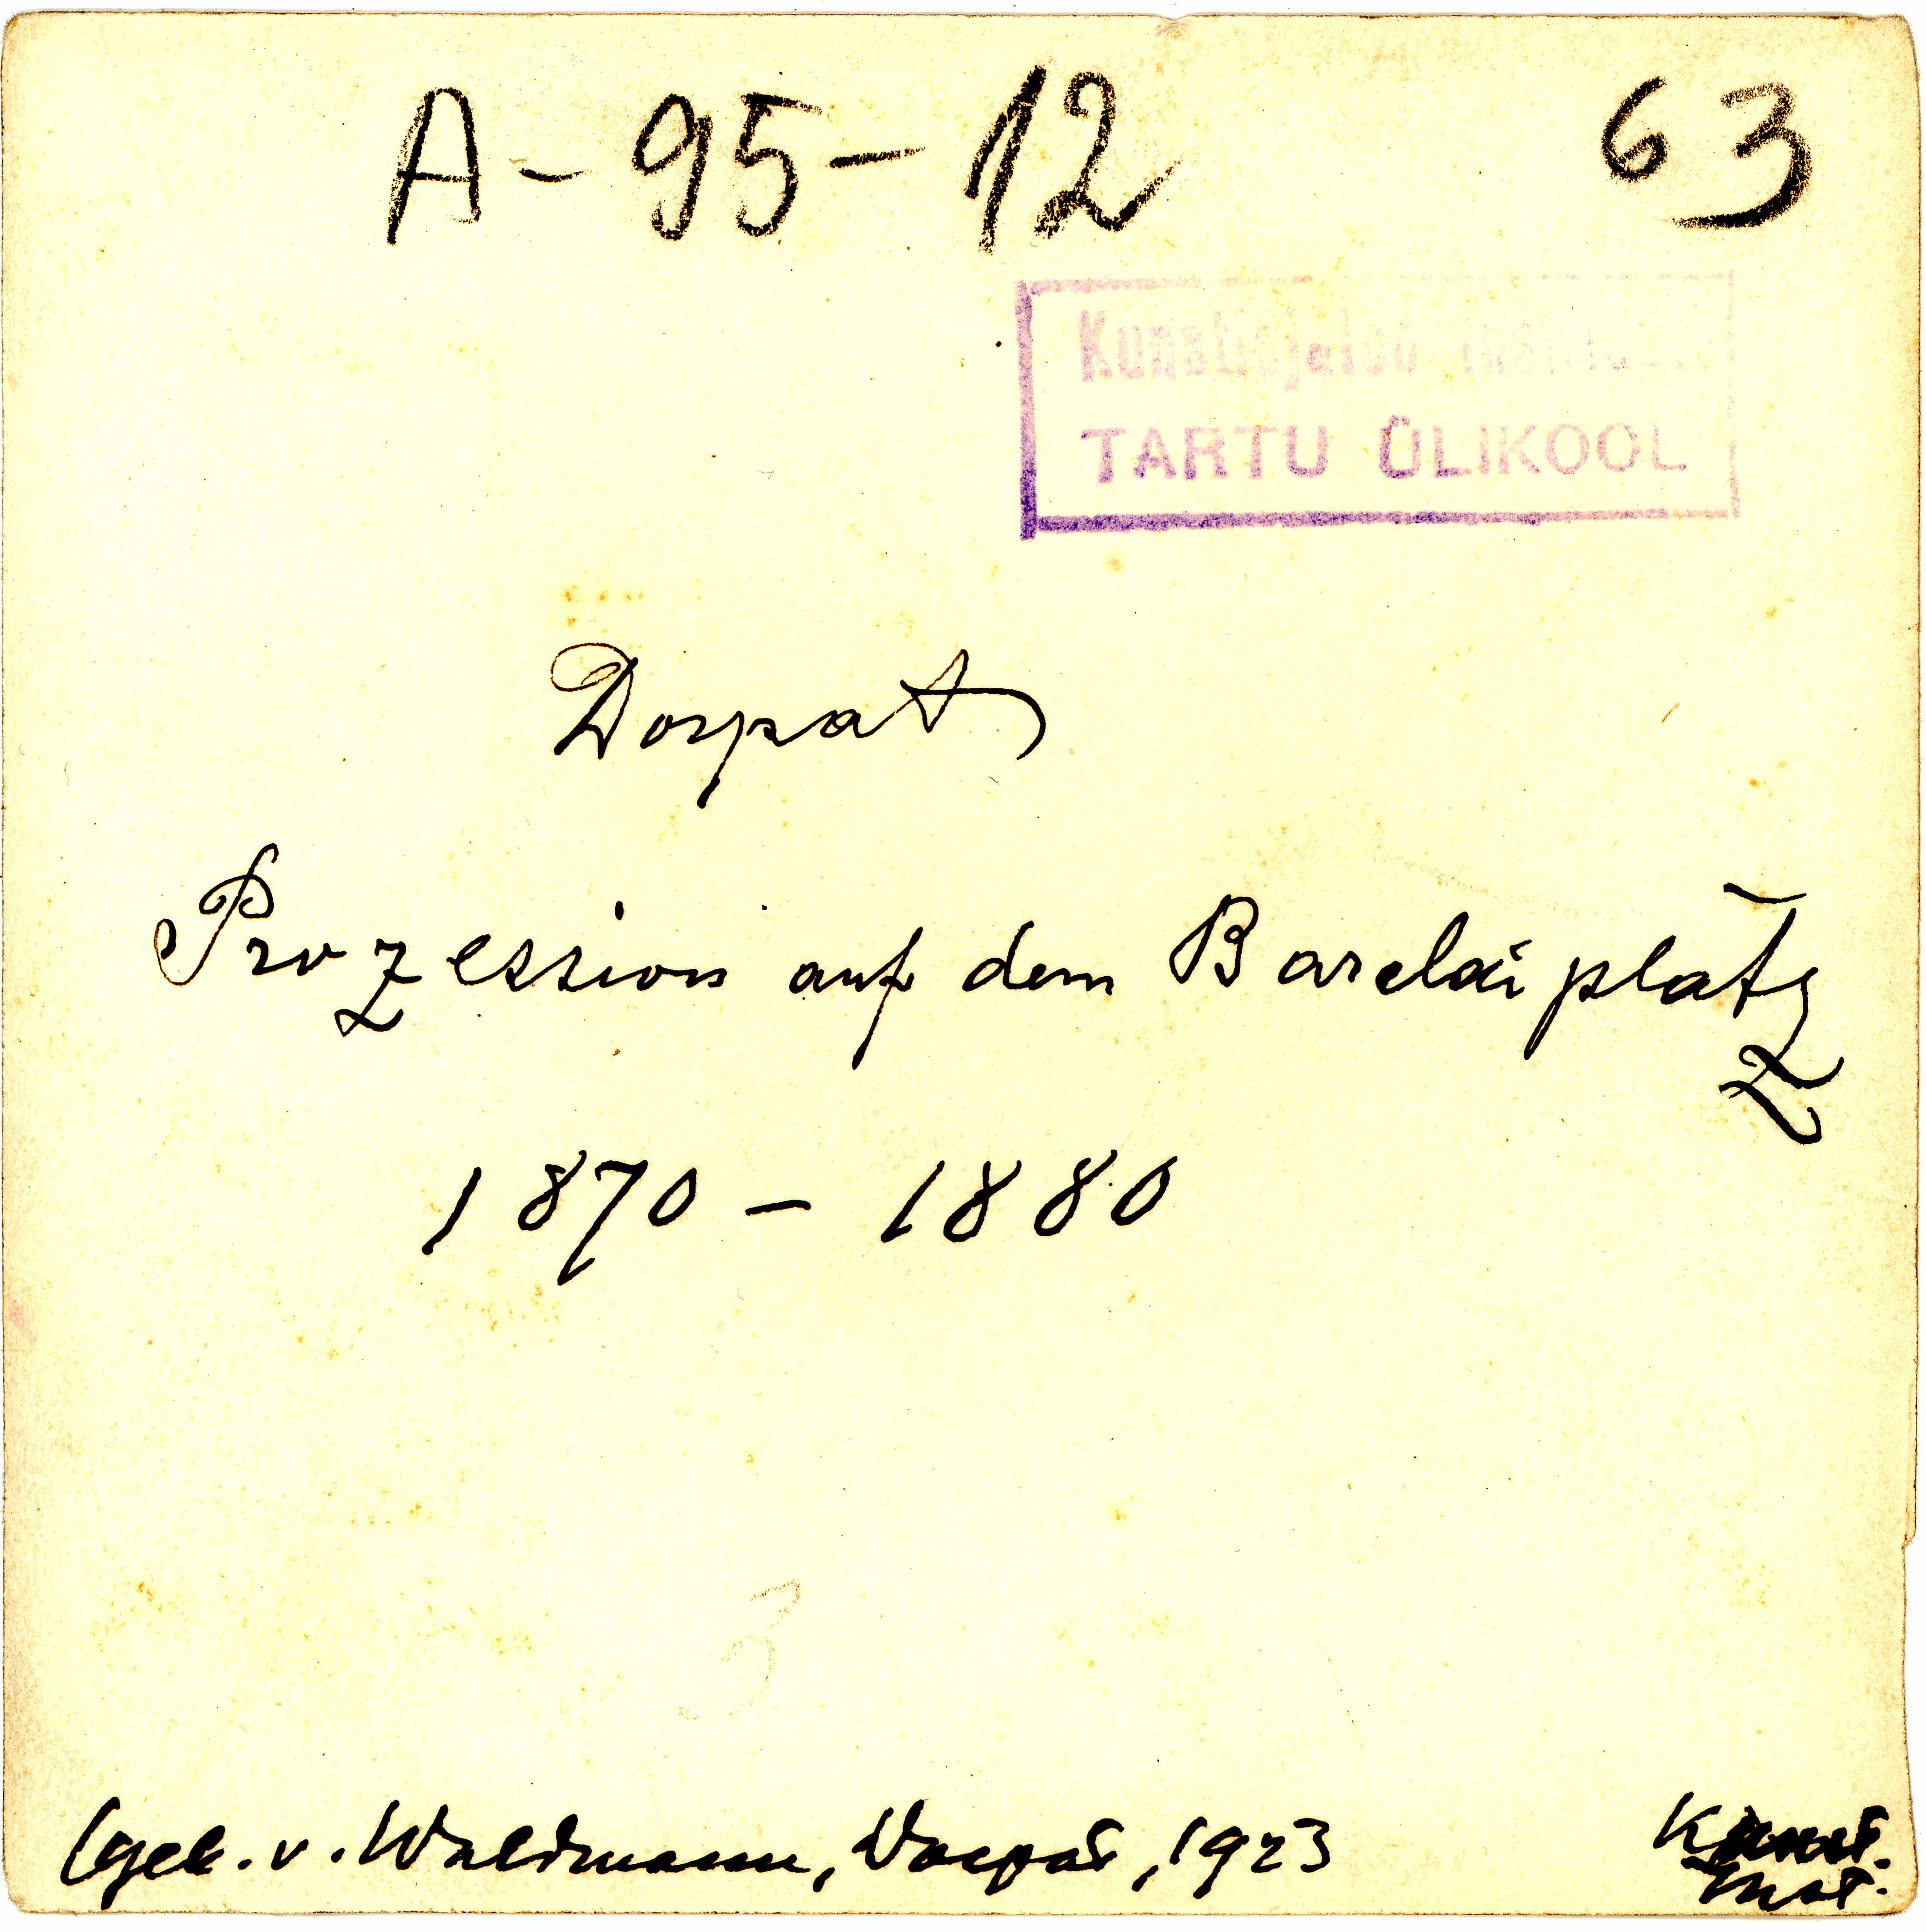 A-95-12 63
Kunstiajaloo
TARTU ÜLIKOOL
Dorpat
Prozession auf dem Barclaiplatz
1870 - 1880
3
(geb. v. Waldmann, Dorpat, 1923
Kunst.
Inst.